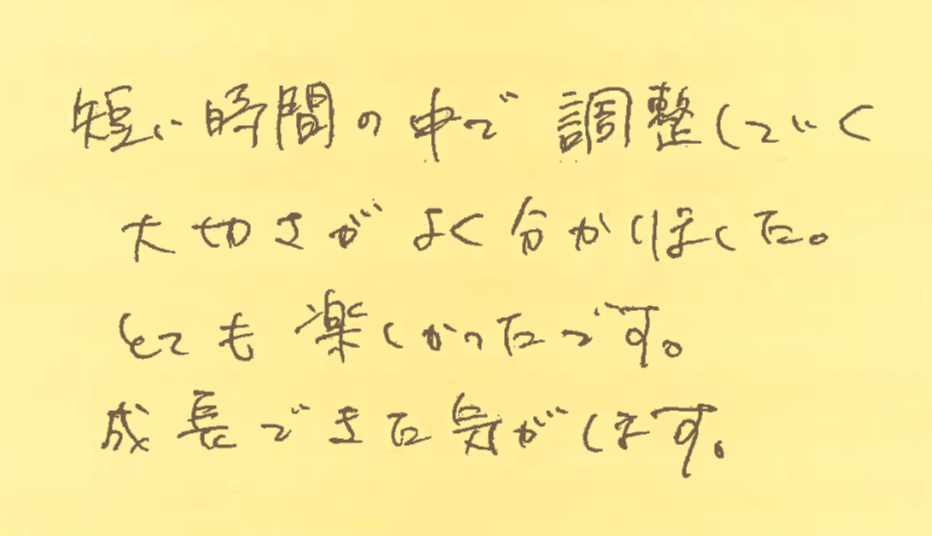 短い時間の中で調整していく
大切さがよく分かりました。
とても楽しかったです。
成長できた気がします。